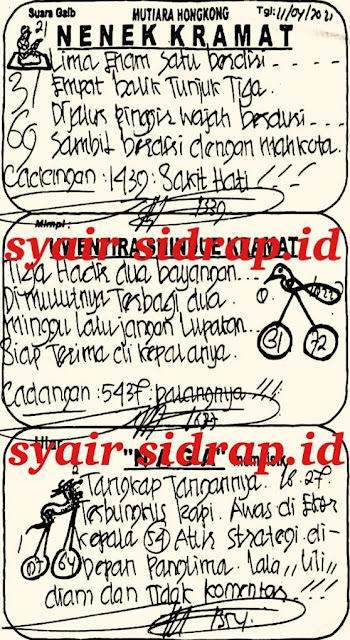 Suara Gaib MUTIARA HONGKONG Tgl: 11/04/2021
NENEK KRAMAT
21
Lima Enam Satu berdiri - - - -
31 Empat balik Tunjuk Tiga.
Dijalur pinggir wajah
69 Sambil berdiri dengan Mahkota.
Cadangan : 1439 : Sakit Hati
Mimpi :
syair-sidrap.id
KRAMAT
Tiga Hadir dua bayangan...
Dimulutnya Terbagi dua.
minggu lalu jangan Lupakan...
Siap Terima di kepalanya.
31 72
Cadangan : 5437 : palangnya !!!
syair-sidrap.id
"NAGA"
2
Tangkap Tangannya. 18. 27.
Terbungkus Rapi. Awas di Ekor
kepala 54 Atur Strategi di-
Depan Panglima. Lala,, Lili,,
07 64
diam dan Tidak komentar !!!